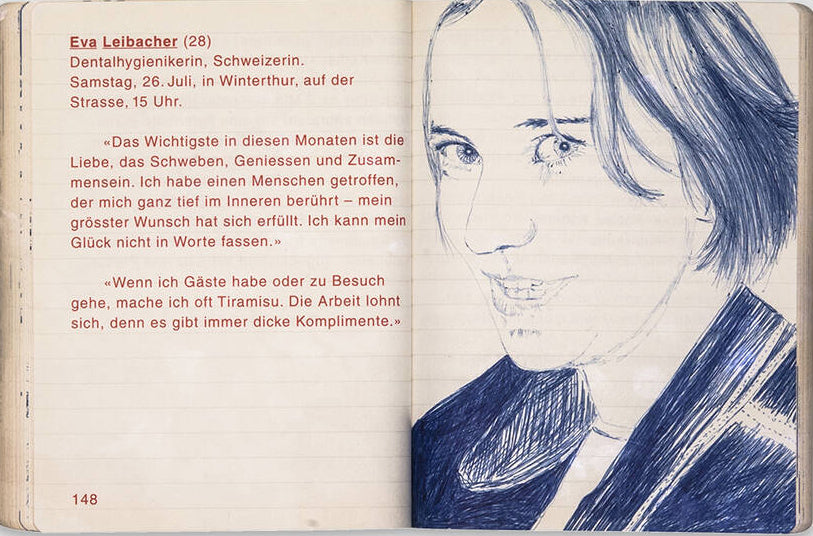 Eva Leibacher (28)
Dentalhygienikerin, Schweizerin.
Samstag, 26. Juli, in Winterthur, auf der
Strasse, 15 Uhr.
«Das Wichtigste in diesen Monaten ist die
Liebe, das Schweben, Geniessen und Zusam-
mensein. Ich habe einen Menschen getroffen,
der mich ganz tief im Inneren berührt – mein
grösster Wunsch hat sich erfüllt. Ich kann mein
Glück nicht in Worte fassen.»
«Wenn ich Gäste habe oder zu Besuch
gehe, mache ich oft Tiramisu. Die Arbeit lohnt
sich, denn es gibt immer dicke Komplimente.»
148